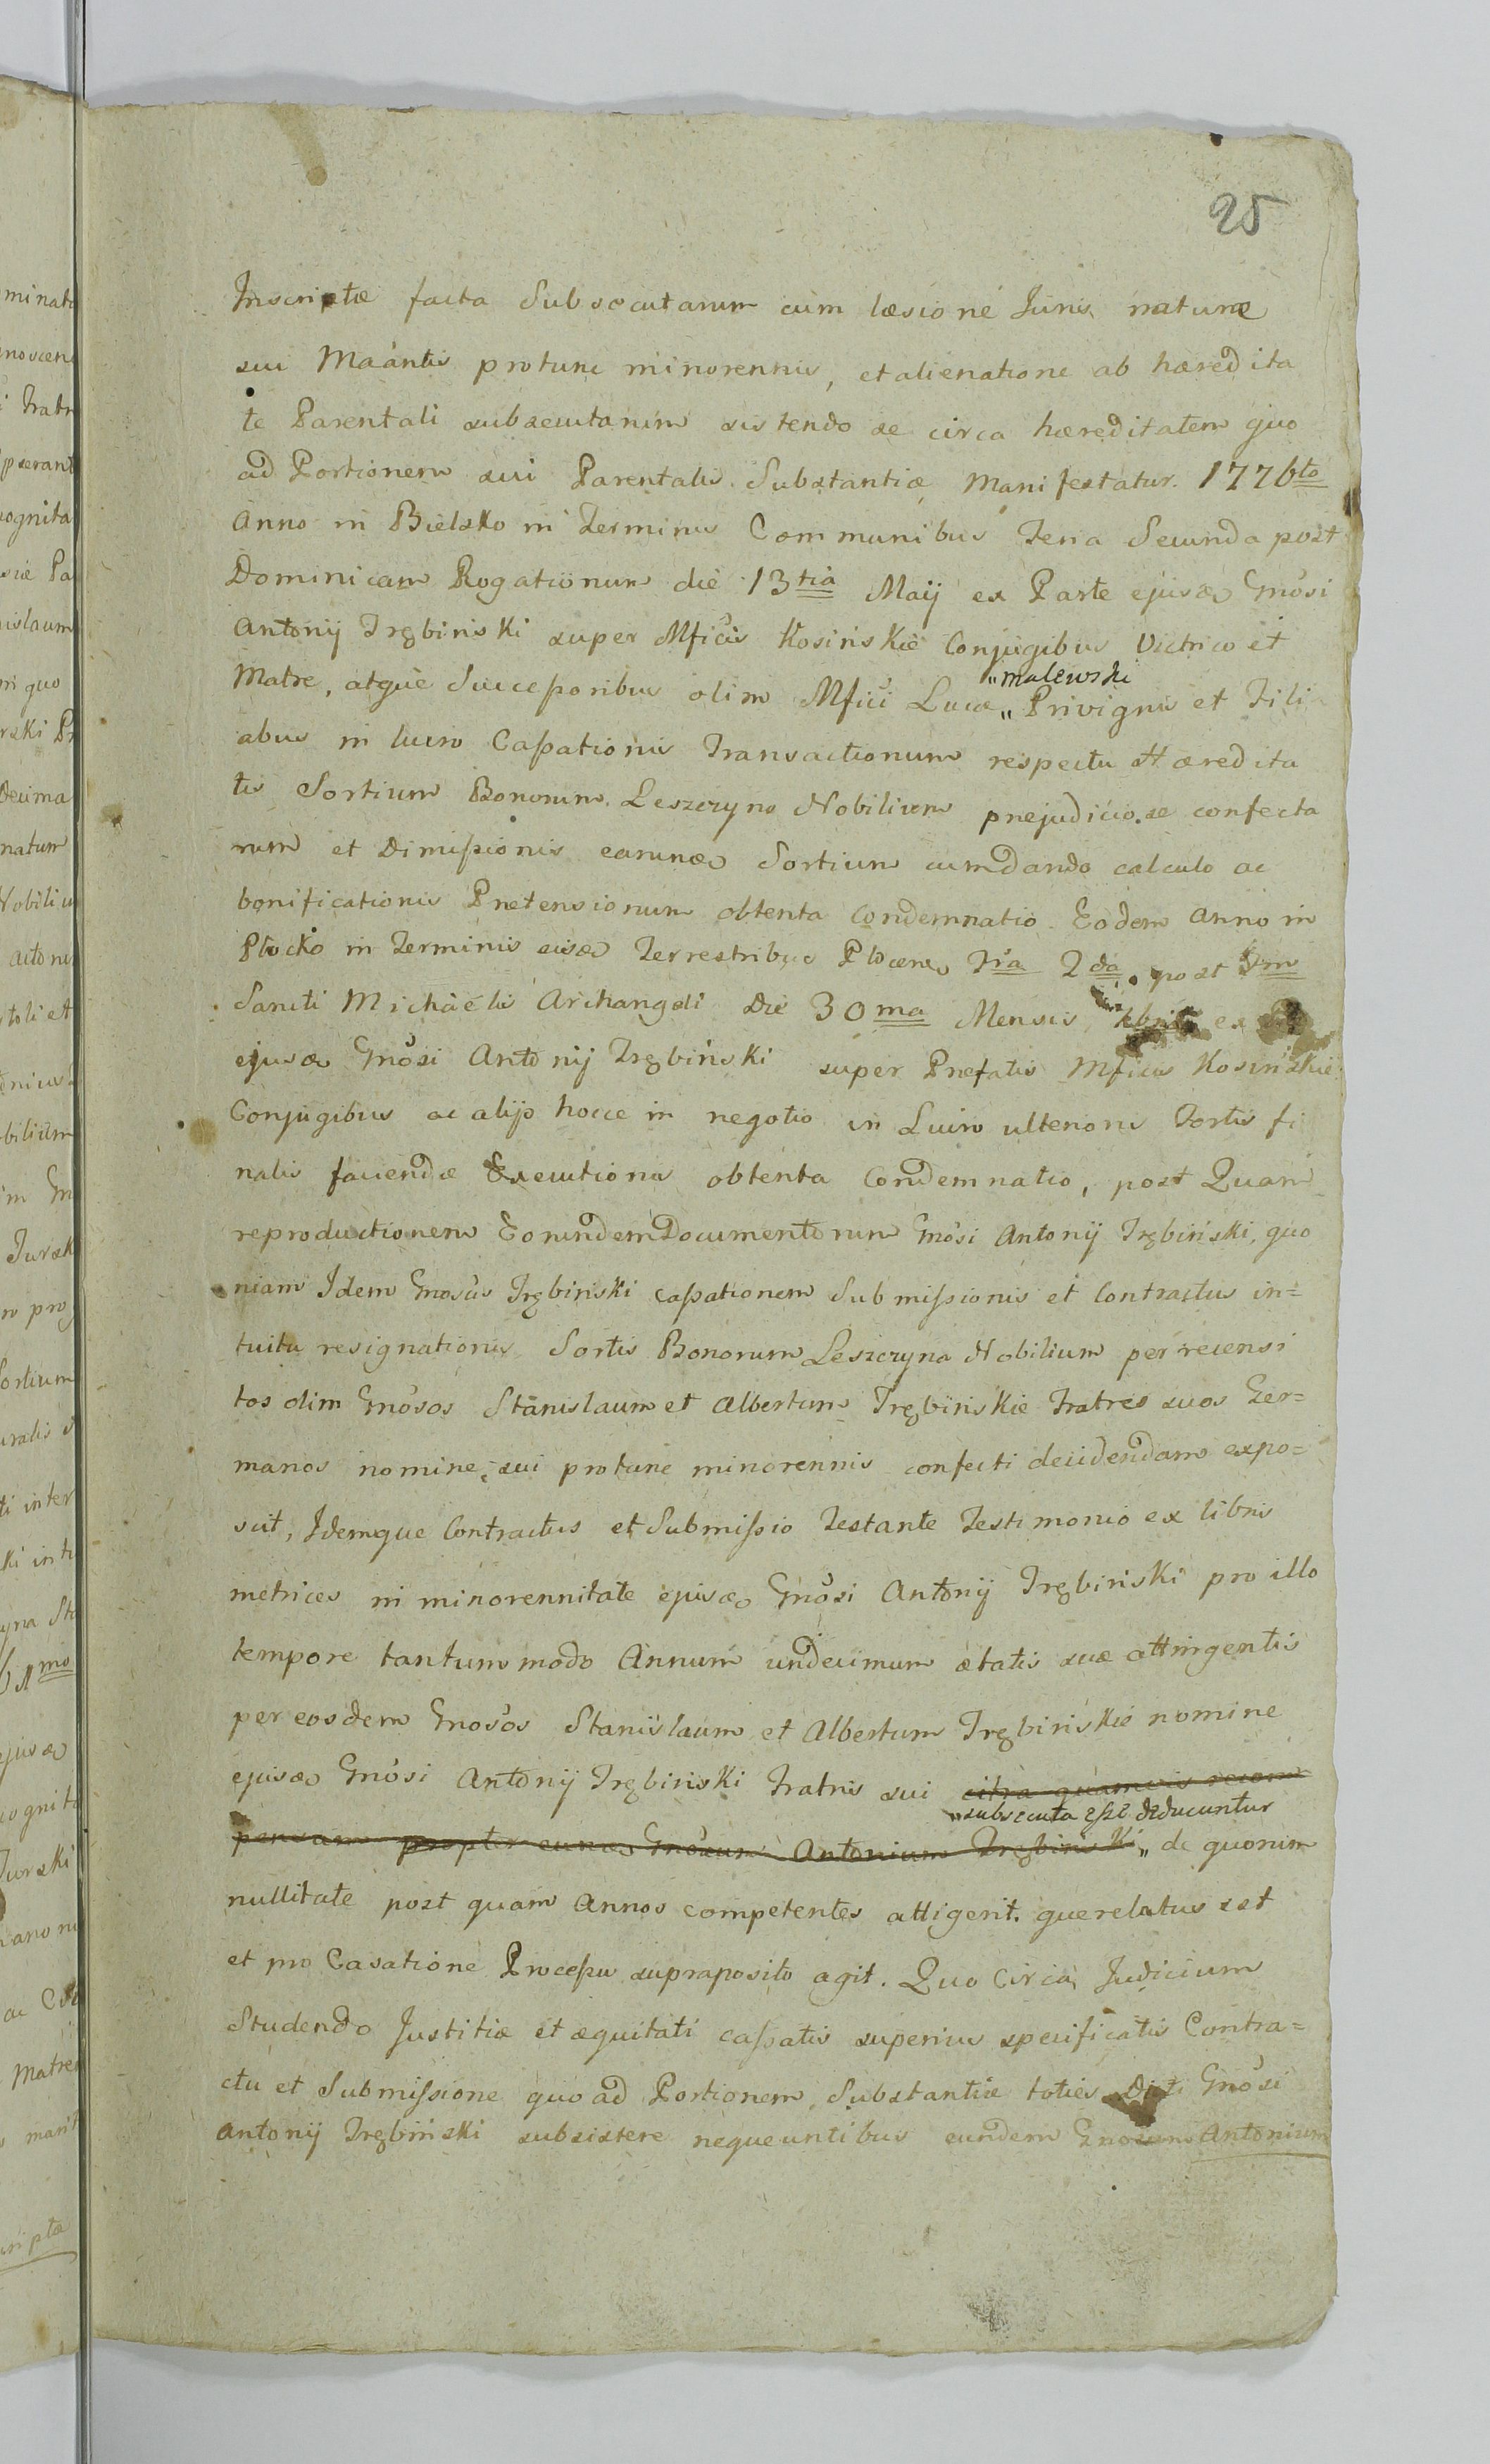 25
Inscriptæ facta Subsecutarum cum læsione Juris naturæ
sui Maāntis protunc minorennis, et alienatione ab hæredita
te Parentali subsecutarum sistendo se circa hæreditatem quo
ad Portionem sui Parentalis Substantiæ Manifestatur. 1776to
Anno in Bielsko in Terminis Communibus Feria Secunda post
Dominicam Rogationum die 13tia Maij ex Parte ejusd Gnosi
Antonij Trębiński super Mficis Kosińskie Conjugibus Victrico et
Matre, atque Successoribus olim Mfici Lucæ „ Privignis et Fili
„Malewski
abus in lucro Cassationis Transactionum respectu Hæredita
tis Sortium Bonorum Leszczyno Nobilium prejudiciose confecta
rum et Dimissionis earund Sortium cum dando calculo ac
bonificationis Pretensionum obtenta Condemnatio. Eodem Anno in
Płocko in Terminis eisd Terrestribus Plocen Fria 2da post Fm
Sancti Michaëlis Archangeli Die 30ma Mensis 7bris ex
ejusd Gnosi Antonij Trębiński super Prefatis Mficis Kosińskie
Conjugibus ac alijs hocce in negotio in Lucro ulterioris Fortis fi
nalis faciendæ Executionis obtenta Condemnatio, post Quam
reproductionem Eorundem Documentorum Gnosi Antonij Trębiński, quo
niam Idem Gnosus Trębiński cassationem Submissionis et Contractus in=
tuitu resignationis Sortis Bonorum Leszczyna Nobilium per recensi
tos olim Gnosos Stanislaum et Albertum Trębińskie Fratres suos Ger=
manos nomine sui protunc minorennis confecti decidendam expo=
suit, Idemque Contractus et Submissio Testante Testimonio ex libris
metrices in minorennitate ejusd Gnosi Antonij Trębiński pro illo
tempore tantummodo Annum undecimum ætatis suæ attingentis
per eosdem Gnosos Stanislaum et Albertum Trębińskie nomine
ejusd Gnosi Antonij Trębiński Fratris sui citra quamvis recom
„subsecuta esse deducuntur
pensam propter eund Gnosum Antonium Trębiński „ de quorum
nullitate post quam Annos competentes attigerit. querelatus est
et pro Casatione Processu supraposito agit. Quo Circa Judicium
Studendo Justitiæ et æquitati cassatis superius specificatis Contra=
ctu et Submissione quo ad Portionem Substantiæ toties Dicti Gnosi
Antonij Trębiński subsistere nequeuntibus eundem Gnosum Antonium